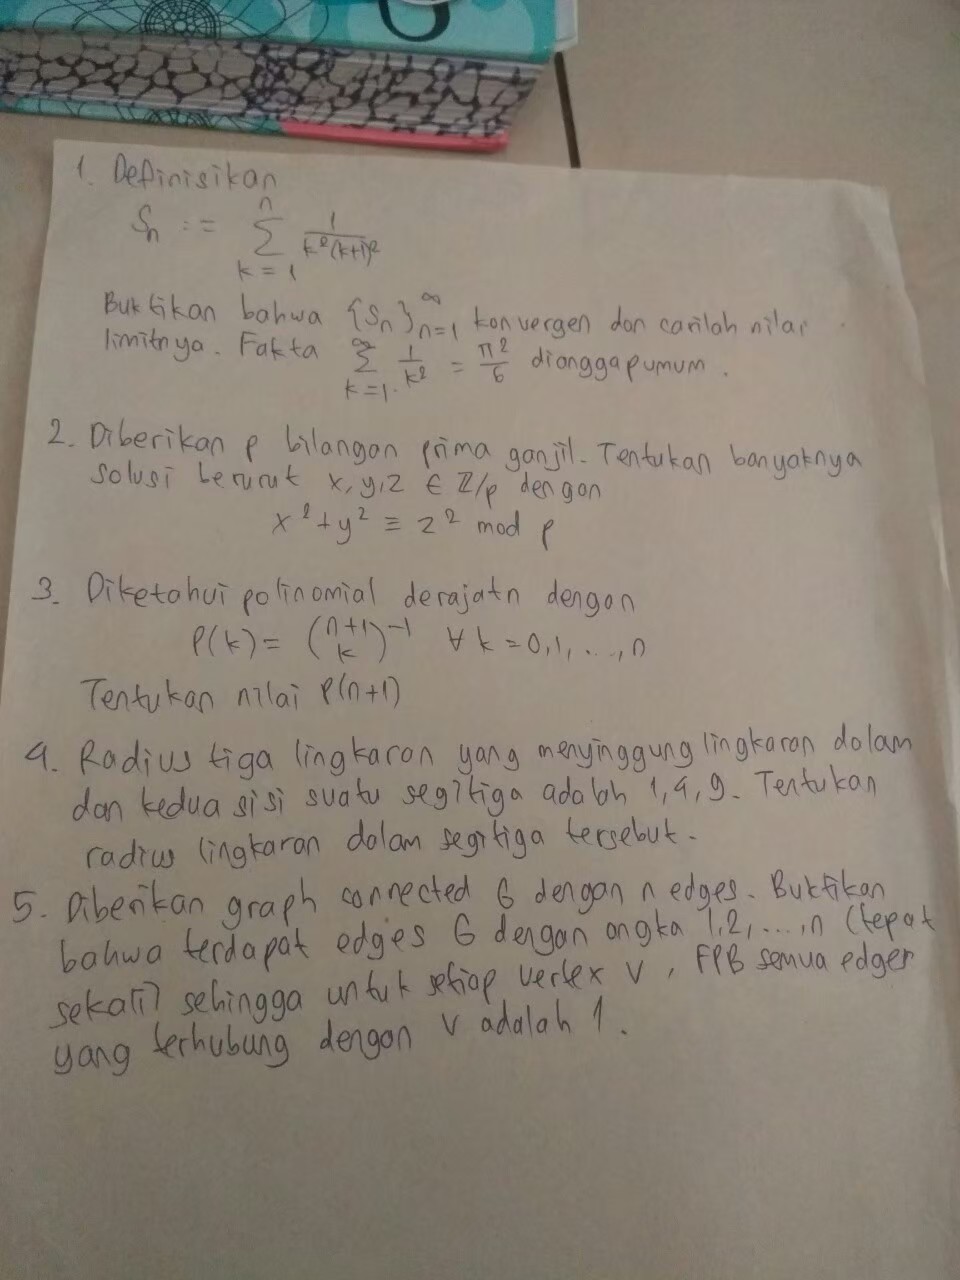 1. Definisikan
Sn := n Σ k=1 1/k²(k+1)²
Buktikan bahwa {Sn}∞n=1 konvergen dan carilah nilai
limitnya. Fakta ∞ Σ k=1 1/k² = π²/6 dianggap umum.
2. Diberikan p bilangan prima ganjil. Tentukan banyaknya
solusi berurut x,y,z ∈ ℤ/p dengan
x² + y² ≡ z² mod p
3. Diketahui polinomial derajat n dengan
P(k) = (n+1 k)⁻¹ ∀ k = 0,1, ..., n
Tentukan nilai P(n+1)
4. Radius tiga lingkaran yang menyinggung lingkaran dalam
dan kedua sisi suatu segitiga adalah 1,4,9. Tentukan
radius lingkaran dalam segitiga tersebut.
5. Diberikan graph connected G dengan n edges. Buktikan
bahwa terdapat edges G dengan angka 1,2,...,n (tepat
sekali) sehingga untuk setiap vertex v, FPB semua edges
yang terhubung dengan v adalah 1.